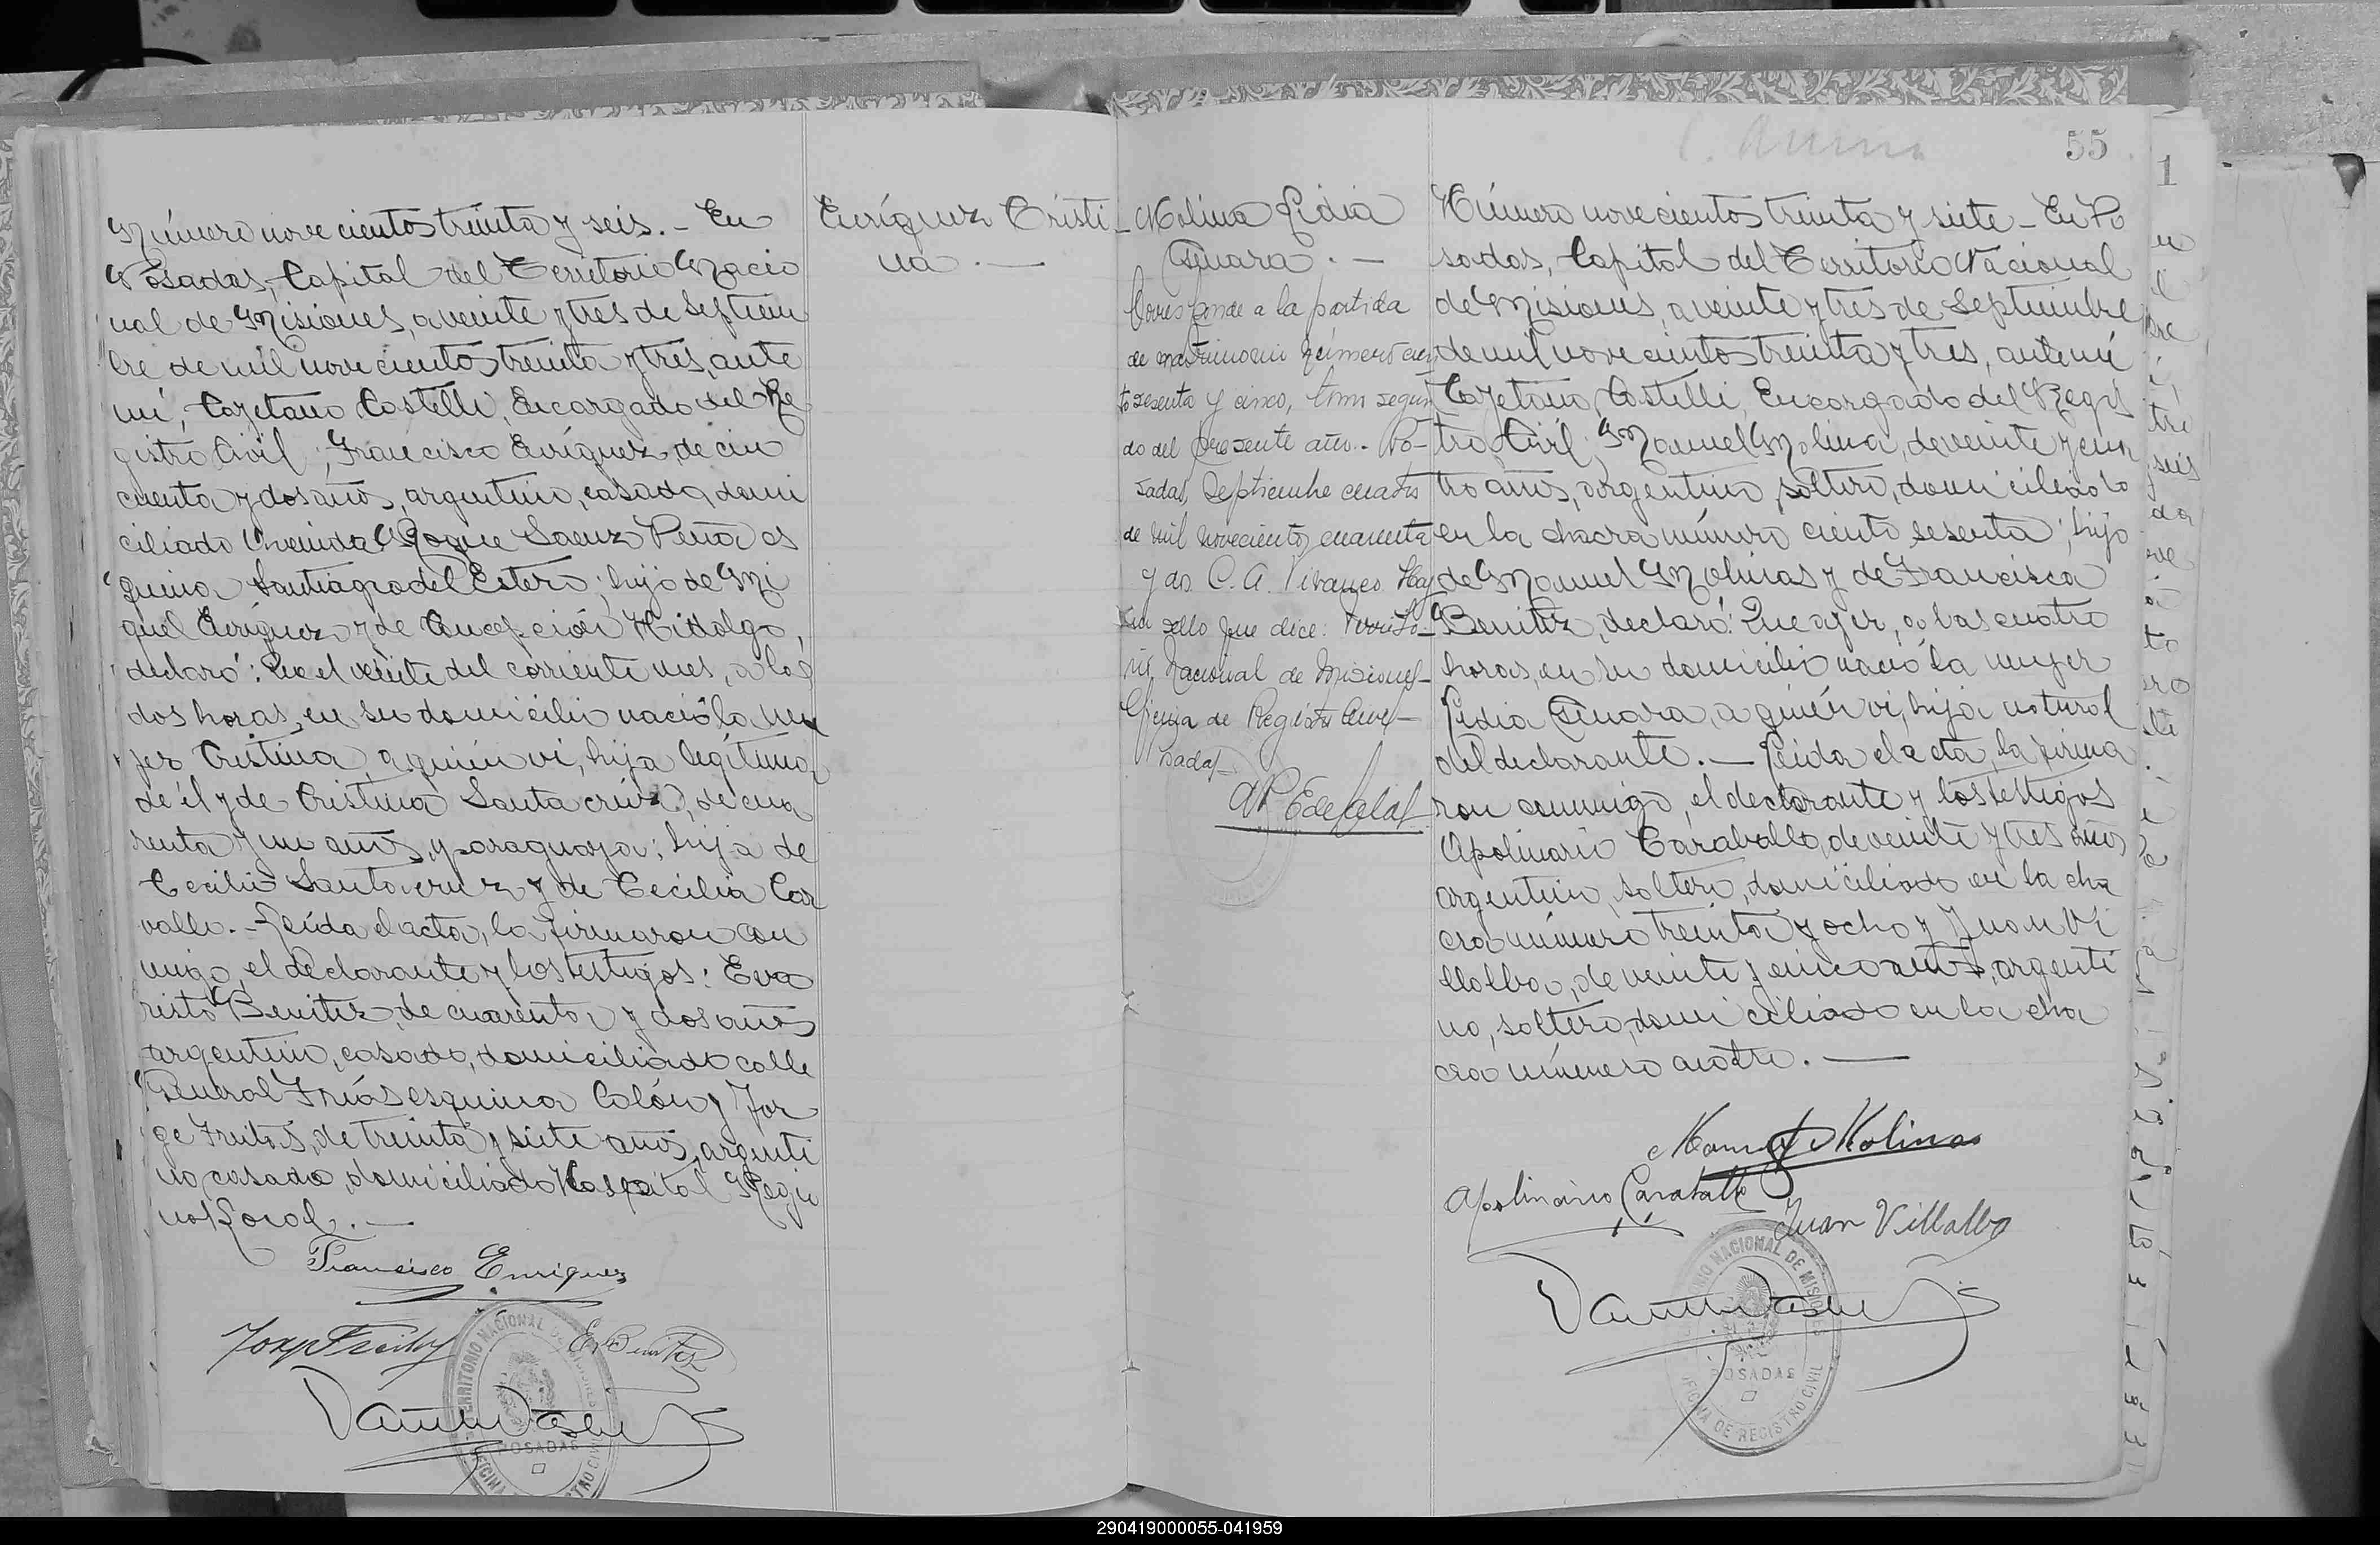 Número novecientos treinta y seis.- En
Posadas, Capital del Territorio Nacio
nal de Misiones, a veinte y tres de Septiem
bre de mil novecientos treinta y tres, ante
mí, Cayetano Castelli, Encargado del Re
gistro Civil; Francisco Enríquez, de cin
cuenta y dos años, argentino, casado, domi
ciliado Avenida Roque Saenz Peña es
quina Santiago del Estero; hijo de Mi
guel Enríquez y de Concepción Hidalgo,
declaró: Que el veinte del corriente mes, a las
dos horas, en su domicilio nació la mu
jer Cristina, a quién vi, hija legítima
de él y de Cristina Santa cruz, de cua
renta y un años, paraguaya; hija de
Cecilio Santa cruz y de Cecilia Car
vallo.- Leída el acta, la firmaron con
migo, el declarante y los testigos: Eva
risto Benitez, de cuarenta y dos años
argentino, casado, domiciliado calle
General Frías esquina Colón y Jor
ge Frutos, de treinta y siete años, argenti
no casado, domiciliado Hospital Regio
nal.-
Francisco Enriquez
E. Benitez
TERRITORIO NACIONAL DE MISIONES
POSADAS
OFICINA DE REGISTRO CIVIL
Enríquez Cristi-
na.-
Molina Lidia
Einara.-
Corresponde a la partida
de matrimonio número cien
to sesenta y cinco, tomo segun
do del presente año.- Po-
sadas, Septiembre cuatro
de mil novecientos cuarenta
y dos. C. A. Vivanco. Hay
un sello que dice: Territo-
rio Nacional de Misiones-
Oficina de Registro Civil-
Posadas-
55
Número novecientos treinta y siete- En Po
sadas, Capital del Territorio Nacional
de Misiones, a veinte y tres de Septiembre
de mil novecientos treinta y tres, ante mí
Cayetano Castelli, Encargado del Regis
tro Civil; Manuel Molina, de veinte y cua
tro años, argentino, soltero, domiciliado
en la chacra número ciento sesenta; hijo
de Manuel Molinas y de Francisca
Benitez, declaró: Que ayer, a las cuatro
horas, en su domicilio nació la mujer
Lidia Einara, a quién vi, hija natural
del declarante.- Leida el acta, la firma
ron conmigo, el declarante y los testigos
Apolinario Caraballo, de veinte y tres años
argentino, soltero, domiciliado en la cha
cra número treinta y ocho y Juan Vi
llalba, de veinte y cinco años, argenti
no, soltero, domiciliado en la cha
cra número cuatro.-
Manuel Molinas
Apolinario Caraballo
Juan Villalba
TERRITORIO NACIONAL DE MISIONES
POSADAS
OFICINA DE REGISTRO CIVIL
290419000055-041959